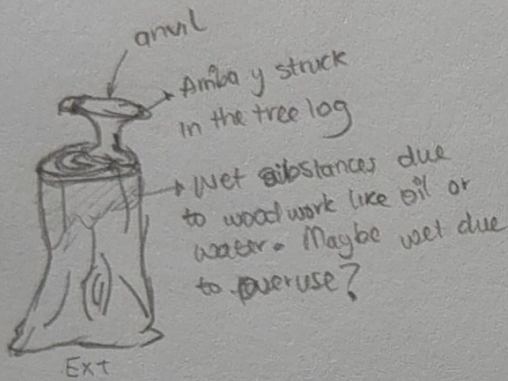 anvil
Amba y struck
in the tree log
Wet substances due
to woodwork like oil or
water. Maybe wet due
to overuse?
Ext